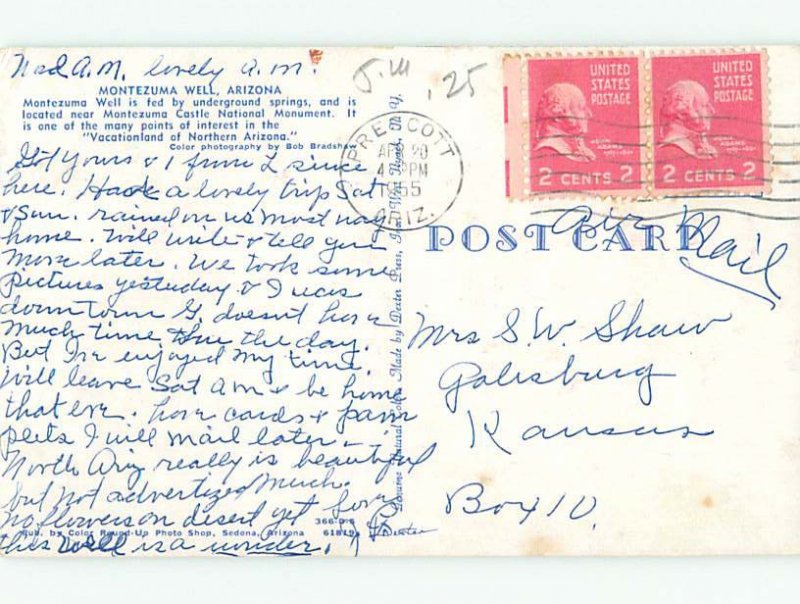 Wed A.M. lovely a.m.
.25
MONTEZUMA WELL, ARIZONA
Montezuma Well is fed by underground springs, and is
located near Montezuma Castle National Monument. It
is one of the many points of interest in the
"Vacationland of Northern Arizona."
Color photography by Bob Bradshaw
Got yours & 1 from L since
here. Had a lovely trip Sat
& Sun. rained on us most way
home. Will write & tell you
more later. We took some
pictures yesterday & I was
down town G. doesn't have
much time thru the day.
But I've enjoyed my time.
Will leave Sat a m & be home
that eve. have cards & pam
plets I will mail later
North Ariz really is beautiful
but not advertized much.
no flowers on desert yet
this well is a wonder.
366-D-S
Pub. by Color Round-Up Photo Shop, Sedona, Arizona 61819
Made by Dexter Press, Inc., West Nyack, N. Y.
PRESCOTT
APR 20
PM
ARIZ.
UNITED
STATES
POSTAGE
JOHN
ADAMS
2 CENTS 2
UNITED
STATES
POSTAGE
JOHN
ADAMS
2 CENTS 2
POST CARD
Air Mail
Mrs S. W. Shaw
Galesburg
Kansas
Box 10.